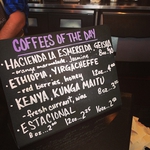 COFFEES OF THE DAY
HACIENDA LA ESMERELDA, GEISHA
- orange marmalade, Jasmine
ETHIOPIA YIRGACHEFFE
- red berries, honey
KENYA KUNGA MAITU
- fresh currant, wine
ESTACIONAL
8oz... 2 12oz... 2.35